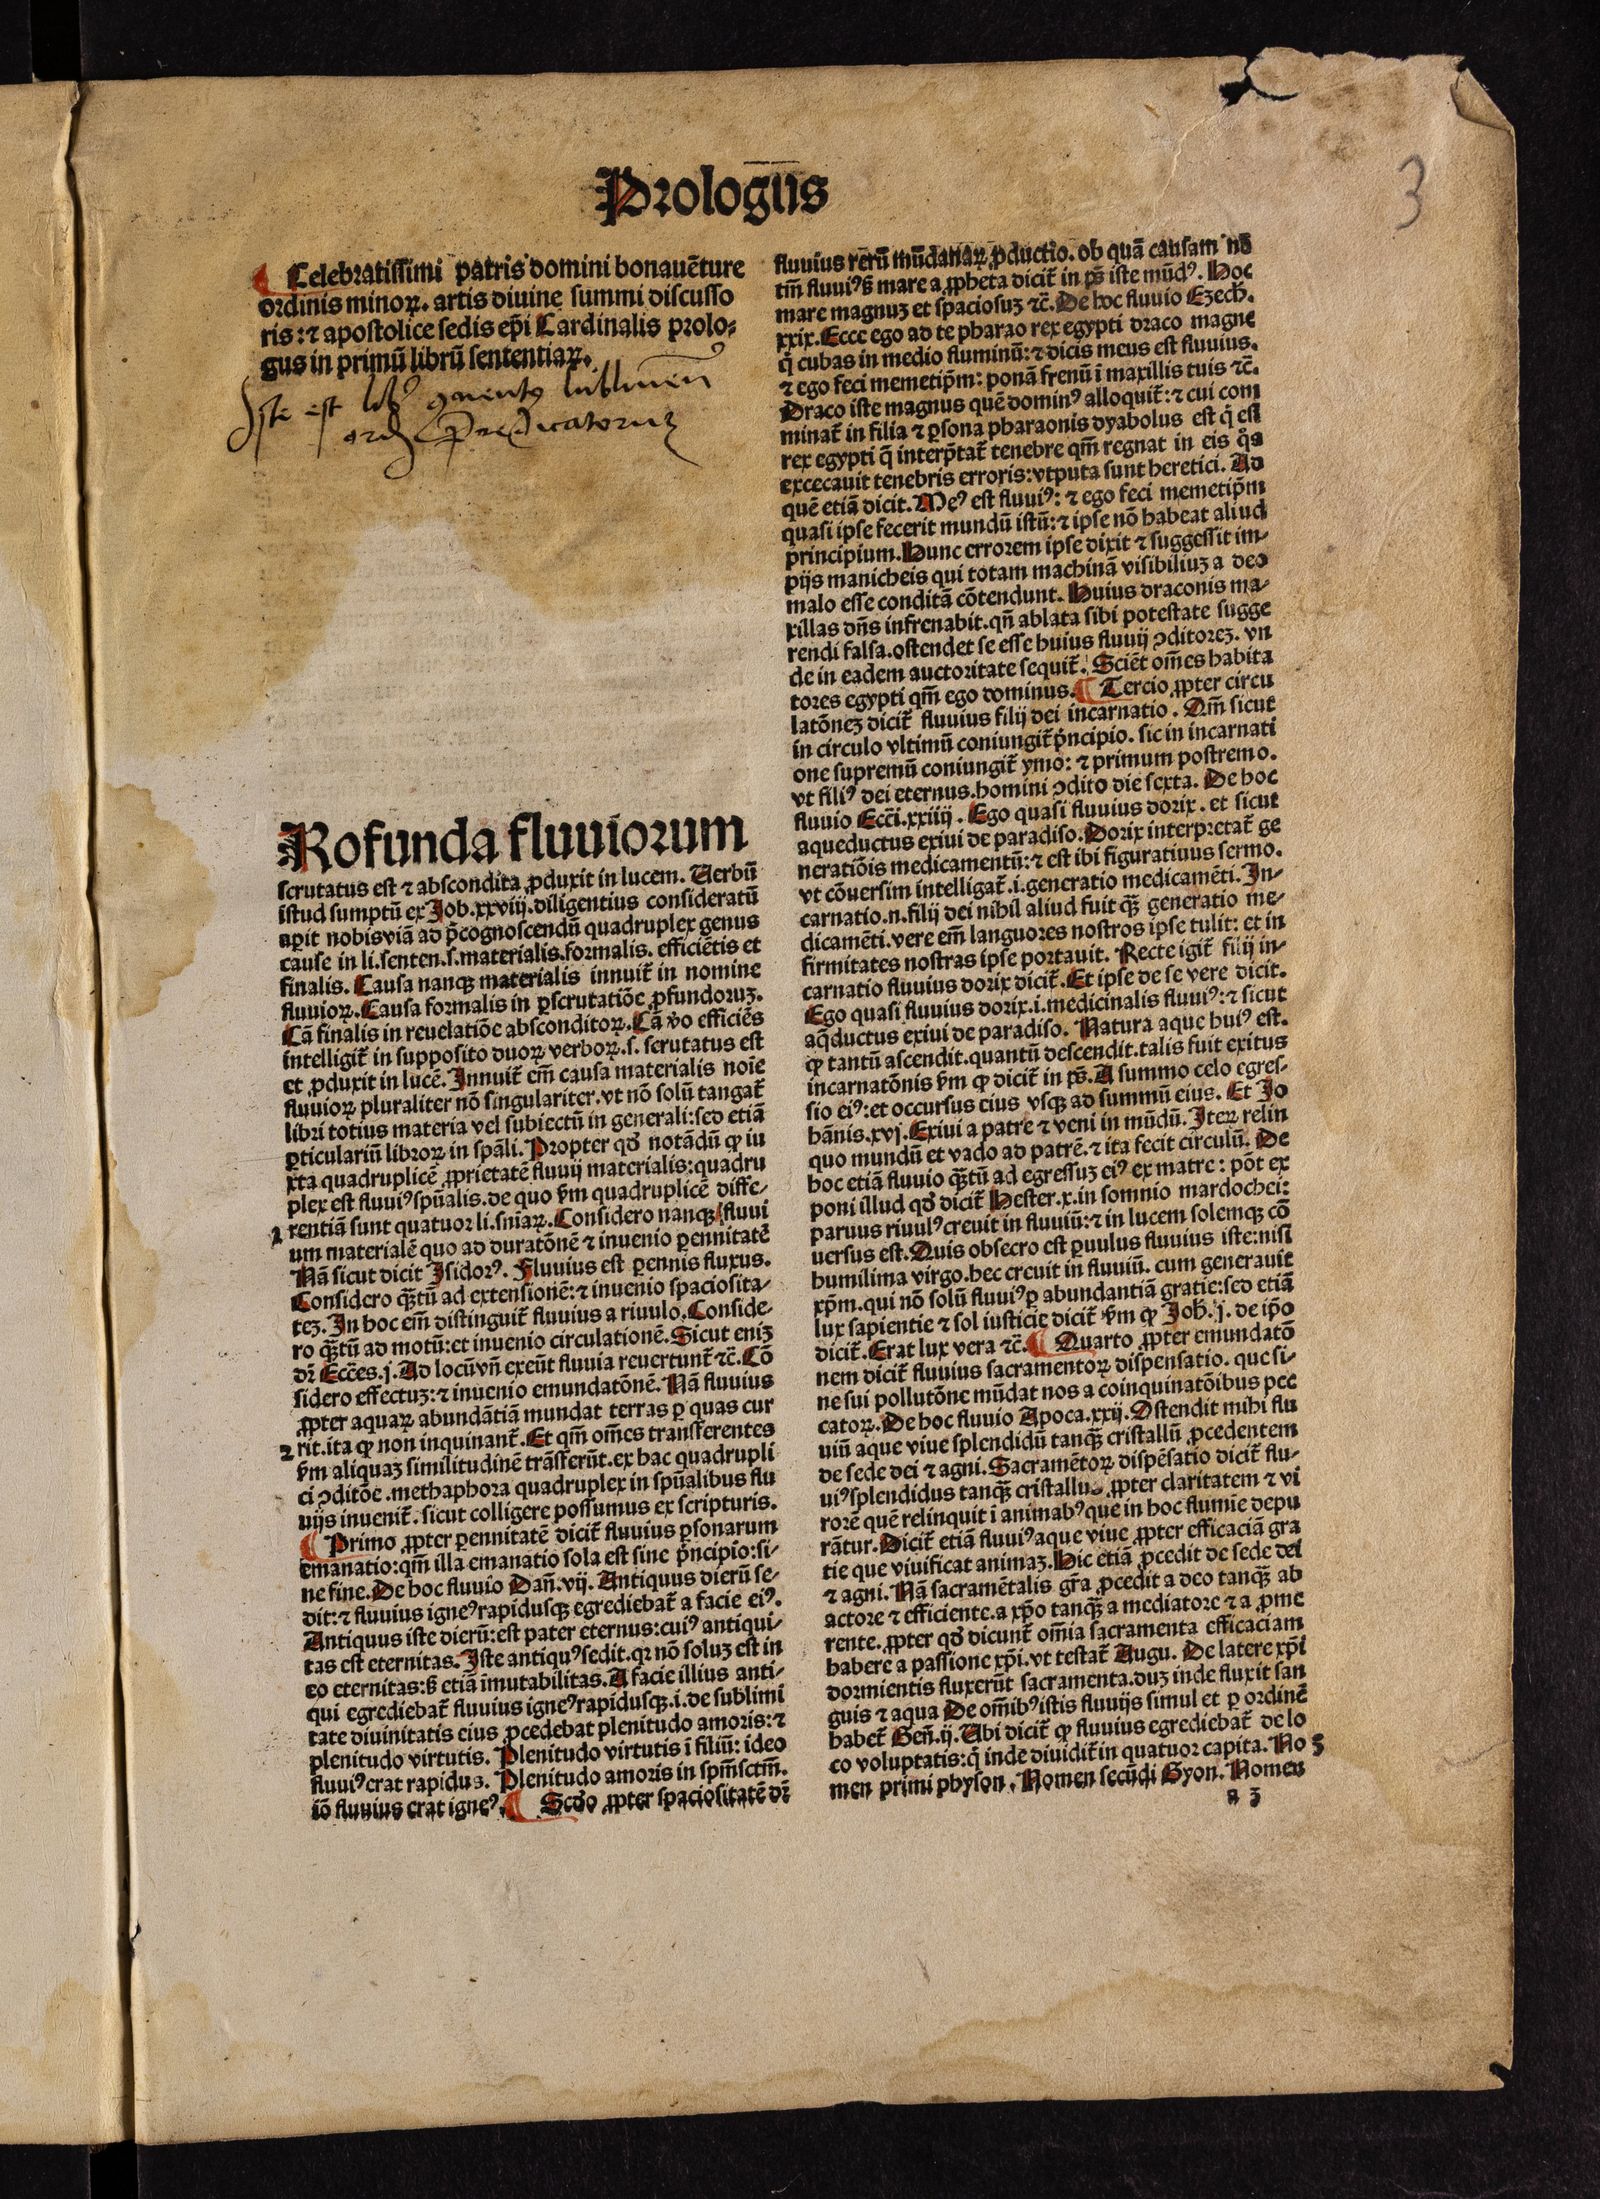 Prologus
3
Celebratissimi patris domini bonauēture
ordinis minoꝝ. artis diuine summi discusso
ris: ⁊ apostolice sedis ep̄i Cardinalis prolo⸗
gus in primū librū sententiaꝝ.
Iste est lib̉ ꝯuentꝰ lublineñ
ord Predicatorum
Rofunda fluuiorum
scrutatus est ⁊ abscondita ꝓduxit in lucem. Uerbū
istud sumptū ex Job.xxviij.diligentius consideratū
aꝑit nobis viā ad p̄cognoscendū quadruplex genus
cause in li.senten.s.materialis.formalis. efficiētis et
finalis. Causa nanqꝫ materialis innuit̄ in nomine
fluuioꝝ. Causa formalis in ꝑscrutatiōe ꝓfundoruꝫ.
Cā finalis in reuelatiōe absconditoꝝ. Cā v̄o efficiēs
intelligit̄ in supposito duoꝝ verboꝝ.s. scrutatus est
et ꝓduxit in lucē. Innuit̄ em̄ causa materialis noīe
fluuioꝝ pluraliter nō singulariter.vt nō solū tangat̄
libri totius materia vel subiectū in generali:sed etiā
ꝑticulariū libroꝝ in spāli. Propter qd̄ notādū ꝙ iu
xta quadruplicē ꝓprietatē fluuij materialis:quadru
plex est fluuiꝰ spūalis.de quo ẜm quadruplicē diffe⸗
rentiā sunt quatuor li.sniaꝝ. Considero nanqꝫ fluui
1
um materialē quo ad duratōnē ⁊ inuenio ꝑennitatē
Nā sicut dicit Isidorꝰ. Fluuius est ꝑennis fluxus.
Considero qꝫtū ad extensionē:⁊ inuenio spaciosita⸗
teꝫ. In hoc em̄ distinguit̄ fluuius a riuulo. Conside⸗
ro qꝫtū ad motū:et inuenio circulationē. Sicut eniꝫ
dr̄ Ecc̄es.j. Ad locū vn̄ exeūt fluuia reuertunt̄ ⁊c̄. Cō
sidero effectuꝫ:⁊ inuenio emundatōnē. Nā fluuius
ꝓpter aquaꝝ abundātiā mundat terras ꝑ quas cur
rit.ita ꝙ non inquinant̄. Et qm̄ om̄es transferentes
2
ẜm aliquaꝫ similitudinē trāsferūt.ex hac quadrupli
ci ꝯditōe .methaphora quadruplex in spūalibus flu
uijs inuenit̄. sicut colligere possumus ex scripturis.
Primo ꝓpter ꝑennitatē dicit̄ fluuius ꝑsonarum
emanatio:qm̄ illa emanatio sola est sine p̄ncipio:si⸗
ne fine. De hoc fluuio Dañ.vij. Antiquus dierū se⸗
dit:⁊ fluuius igneꝰ rapidusqꝫ egrediebat̄ a facie eiꝰ.
Antiquus iste dierū:est pater eternus:cuiꝰ antiqui⸗
tas est eternitas. Iste antiquꝰ sedit.qꝛ nō soluꝫ est in
eo eternitas:ẜ etiā īmutabilitas. A facie illius anti⸗
qui egrediebat̄ fluuius igneꝰ rapidusqꝫ.i.de sublimi
tate diuinitatis eius ꝓcedebat plenitudo amoris:⁊
plenitudo virtutis. Plenitudo virtutis ī filiū: ideo
fluuiꝰ erat rapidus. Plenitudo amoris in spm̄sctm̄.
iō fluuius erat igneꝰ. Scd̄o ꝓpter spaciositatē dr̄
fluuius rerū mūdanaꝝ ꝓductio. ob quā causam nō
tm̄ fluuiꝰ ẜ mare a ꝓpheta dicit̄ in ps̄ iste mūdꝰ. Hoc
mare magnuꝫ et spaciosuꝫ ⁊c̄. De hoc fluuio Ezech̄.
xxix. Ecce ego ad te pharao rex egypti draco magne
q̄ cubas in medio fluminū:⁊ dicis meus est fluuius.
⁊ ego feci memetip̄m: ponā frenū ī maxillis tuis ⁊c̄.
Draco iste magnus quē dominꝰ alloquit̄:⁊ cui com
minat̄ in filia ⁊ ꝑsona pharaonis dyabolus est q̄ est
rex egypti q̄ interp̄tat̄ tenebre qm̄ regnat in eis q̊s
excecauit tenebris erroris:vtputa sunt heretici. Ad
quē etiā dicit. Meꝰ est fluuiꝰ: ⁊ ego feci memetip̄m
quasi ipse fecerit mundū istū:⁊ ipse nō habeat aliud
principium. Hunc errorem ipse dixit ⁊ suggessit im⸗
pijs manicheis qui totam machinā visibiliuꝫ a deo
malo esse conditā cōtendunt. Huius draconis ma⸗
xillas dn̄s infrenabit.qn̄ ablata sibi potestate sugge
rendi falsa.ostendet se esse huius fluuij ꝯditoreꝫ. vn
de in eadem auctoritate sequit̄. Sciēt om̄es habita
tores egypti qm̄ ego dominus. Tercio ꝓpter circu
latōneꝫ dicit̄ fluuius filij dei incarnatio. Qm̄ sicut
in circulo vltimū coniungit̄ p̄ncipio. sic in incarnati
one supremū coniungit̄ ymo: ⁊ primum postremo.
vt filiꝰ dei eternus.homini ꝯdito die sexta. De hoc
fluuio Ecc̄i.xxiiij. Ego quasi fluuius dorix. et sicut
aqueductus exiui de paradiso. Dorix interpretat̄ ge
neratiōis medicamentū:⁊ est ibi figuratiuus sermo.
vt cōuersim intelligat̄.i.generatio medicamēti. In⸗
carnatio.n.filij dei nihil aliud fuit qꝫ generatio me⸗
dicamēti.vere em̄ languores nostros ipse tulit: et in
firmitates nostras ipse portauit. Recte igit̄ filij in⸗
carnatio fluuius dorix dicit̄. Et ipse de se vere dicit.
Ego quasi fluuius dorix.i.medicinalis fluuiꝰ:⁊ sicut
aq̄ductus exiui de paradiso. Natura aque huiꝰ est.
ꝙ tantū ascendit.quantū descendit.talis fuit exitus
incarnatōnis ẜm ꝙ dicit̄ in ps̄. A summo celo egres⸗
sio eiꝰ:et occursus eius vsqꝫ ad summū eius. Et Jo
hānis.xvj. Exiui a patre ⁊ veni in mūdū. Iteꝝ relin
quo mundū et vado ad patrē.⁊ ita fecit circulū. De
hoc etiā fluuio qꝫtū ad egressuꝫ eiꝰ ex matre: pōt ex
poni illud qd̄ dicit̄ Hester.x.in somnio mardochei:
paruus riuulꝰ creuit in fluuiū:⁊ in lucem solemqꝫ cō
uersus est. Quis obsecro est ꝑuulus fluuius iste:nisi
humilima virgo.hec creuit in fluuiū. cum generauit
xp̄m.qui nō solū fluuiꝰ ꝑ abundantiā gratie:sed etiā
lux sapientie ⁊ sol iusticie dicit̄ ẜm ꝙ Joh̄.j. de ip̄o
dicit̄. Erat lux vera ⁊c̄. Quarto ꝓpter emundatō
nem dicit̄ fluuius sacramentoꝝ dispensatio. que si⸗
ne sui pollutōne mūdat nos a coinquinatōibus pec
catoꝝ. De hoc fluuio Apoca.xxij. Ostendit mihi flu
uiū aque viue splendidū tanqꝫ cristallū ꝓcedentem
de sede dei ⁊ agni. Sacramētoꝝ dispēsatio dicit̄ flu⸗
uiꝰ splendidus tanqꝫ cristallus ꝓpter claritatem ⁊ vi
rorē quē relinquit ī animabꝰ que in hoc flumīe depu
rātur. Dicit̄ etiā fluuiꝰ aque viue ꝓpter efficaciā gra
tie que viuificat animaꝫ. Hic etiā ꝓcedit de sede dei
⁊ agni. Nā sacramētalis gr̄a ꝓcedit a deo tanqꝫ ab
actore ⁊ efficiente.a xp̄o tanqꝫ a mediatore ⁊ a ꝓme
rente. ꝓpter qd̄ dicunt̄ om̄ia sacramenta efficaciam
habere a passione xp̄i.vt testat̄ Augu. De latere xp̄i
dormientis fluxerūt sacramenta.duꝫ inde fluxit san
guis ⁊ aqua De om̄ibꝰ istis fluuijs simul et ꝑ ordinē
habet̄ Geñ.ij. Ubi dicit̄ ꝙ fluuius egrediebat̄ de lo
co voluptatis:q̄ inde diuidit̄ in quatuor capita. No
3
men primi physon. Nomen secūdi Gyon. Nomen
a 3